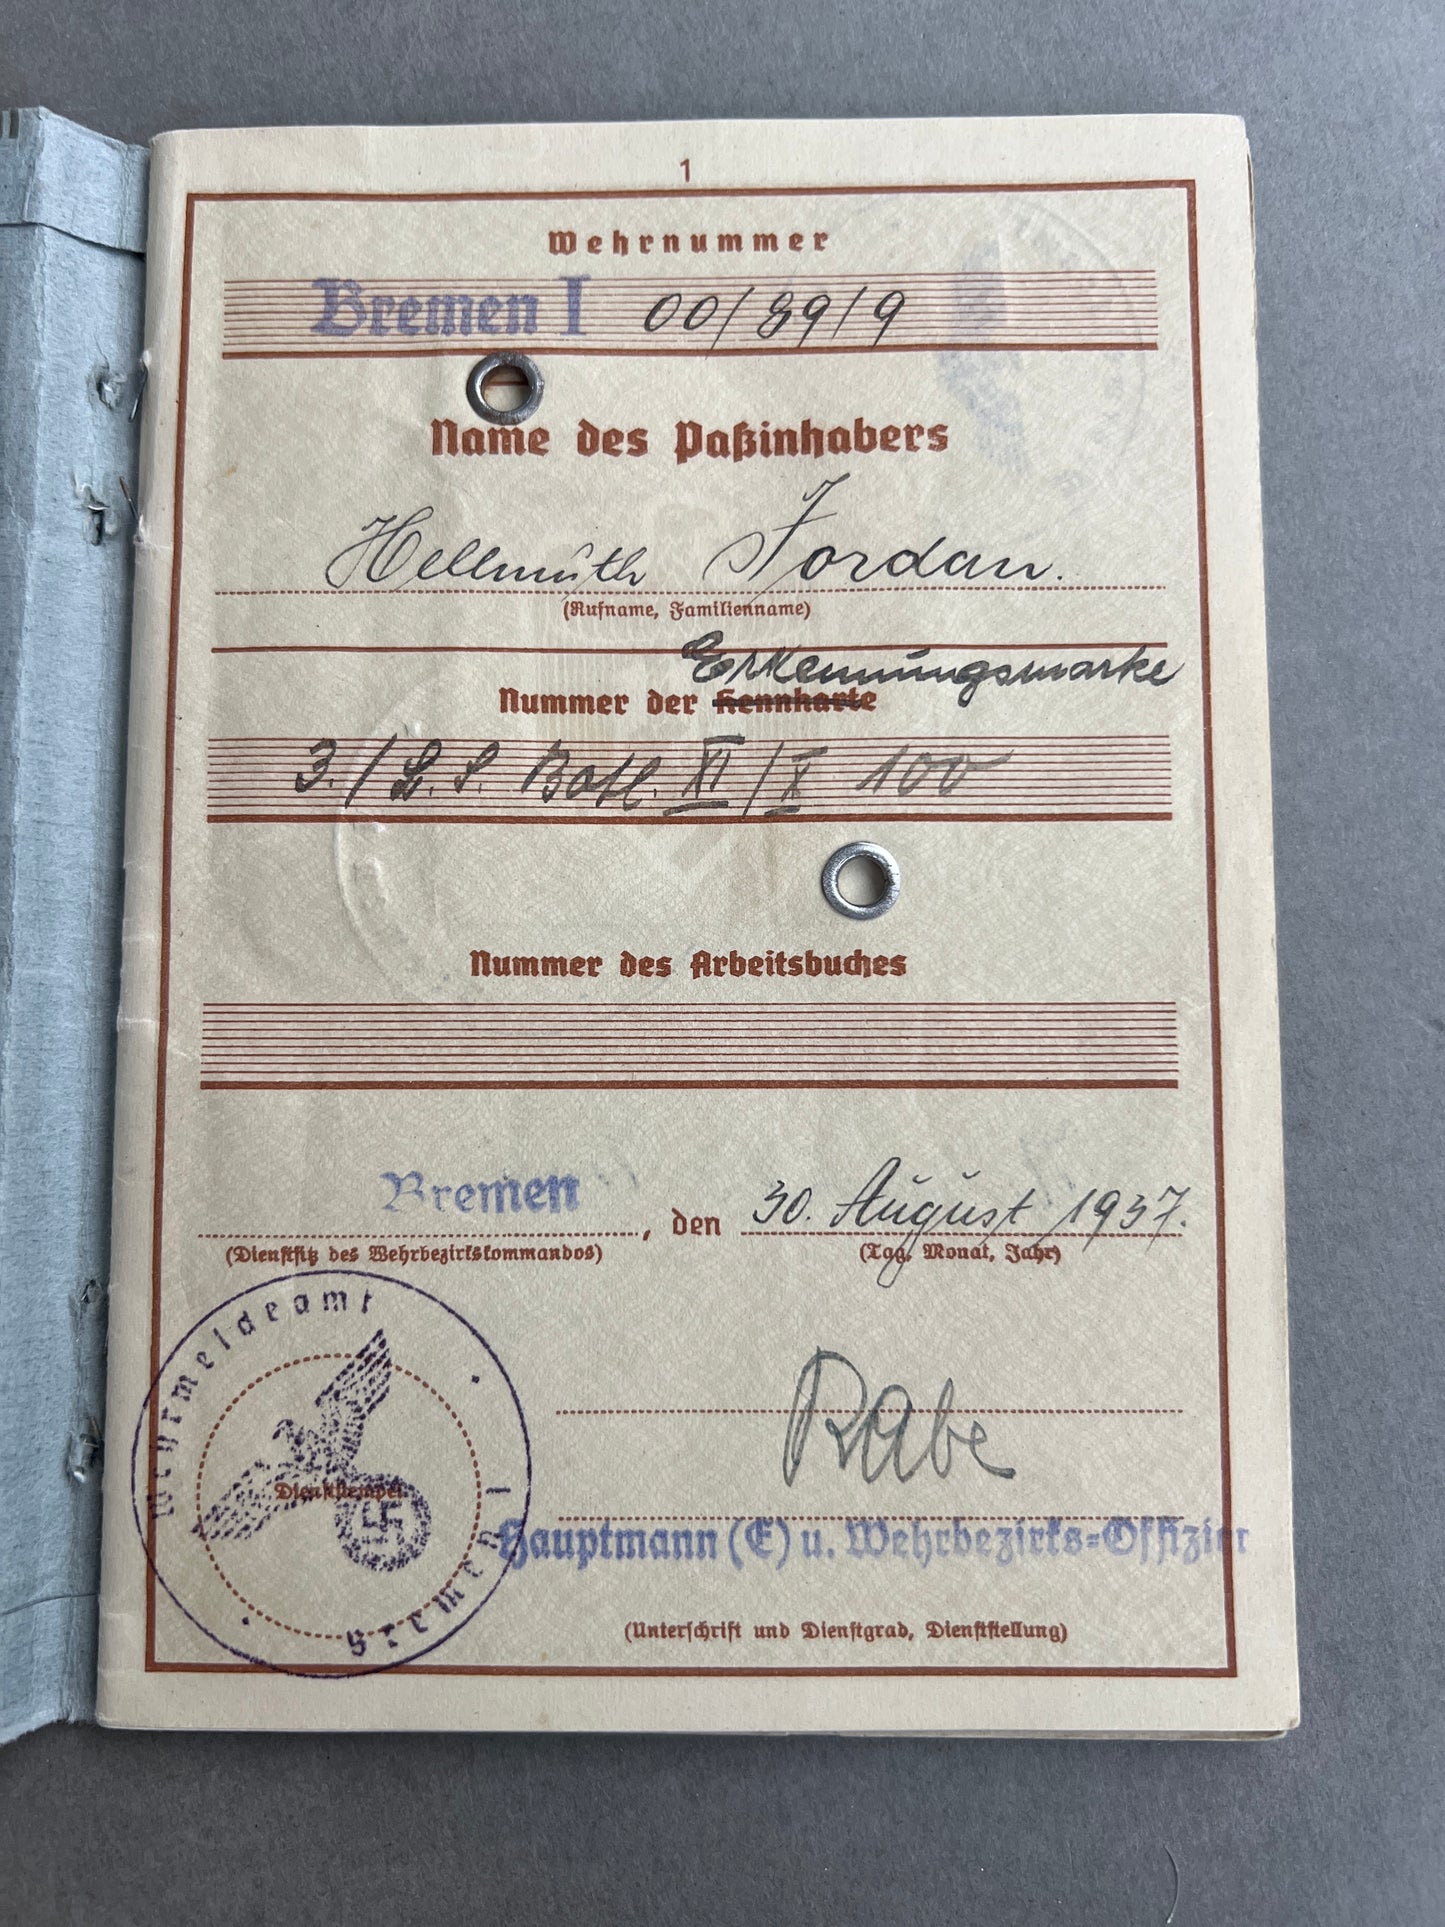 1
Wehrnummer
Bremen I 00/89/9
Name des Paßinhabers
Hellmuth Jordan.
(Rufname, Familienname)
Erkennungsmarke
Nummer der Kennkarte
3./L.S. Batl. XI/X 100
Nummer des Arbeitsbuches
Bremen, den 30. August 1937.
(Dienstsitz des Wehrbezirkskommandos) (Tag, Monat, Jahr)
Wehrmeldeamt
Dienststempel
Bremen I
Rabe
Hauptmann (E) u. Wehrbezirks-Offizier
(Unterschrift und Dienstgrad, Dienststellung)